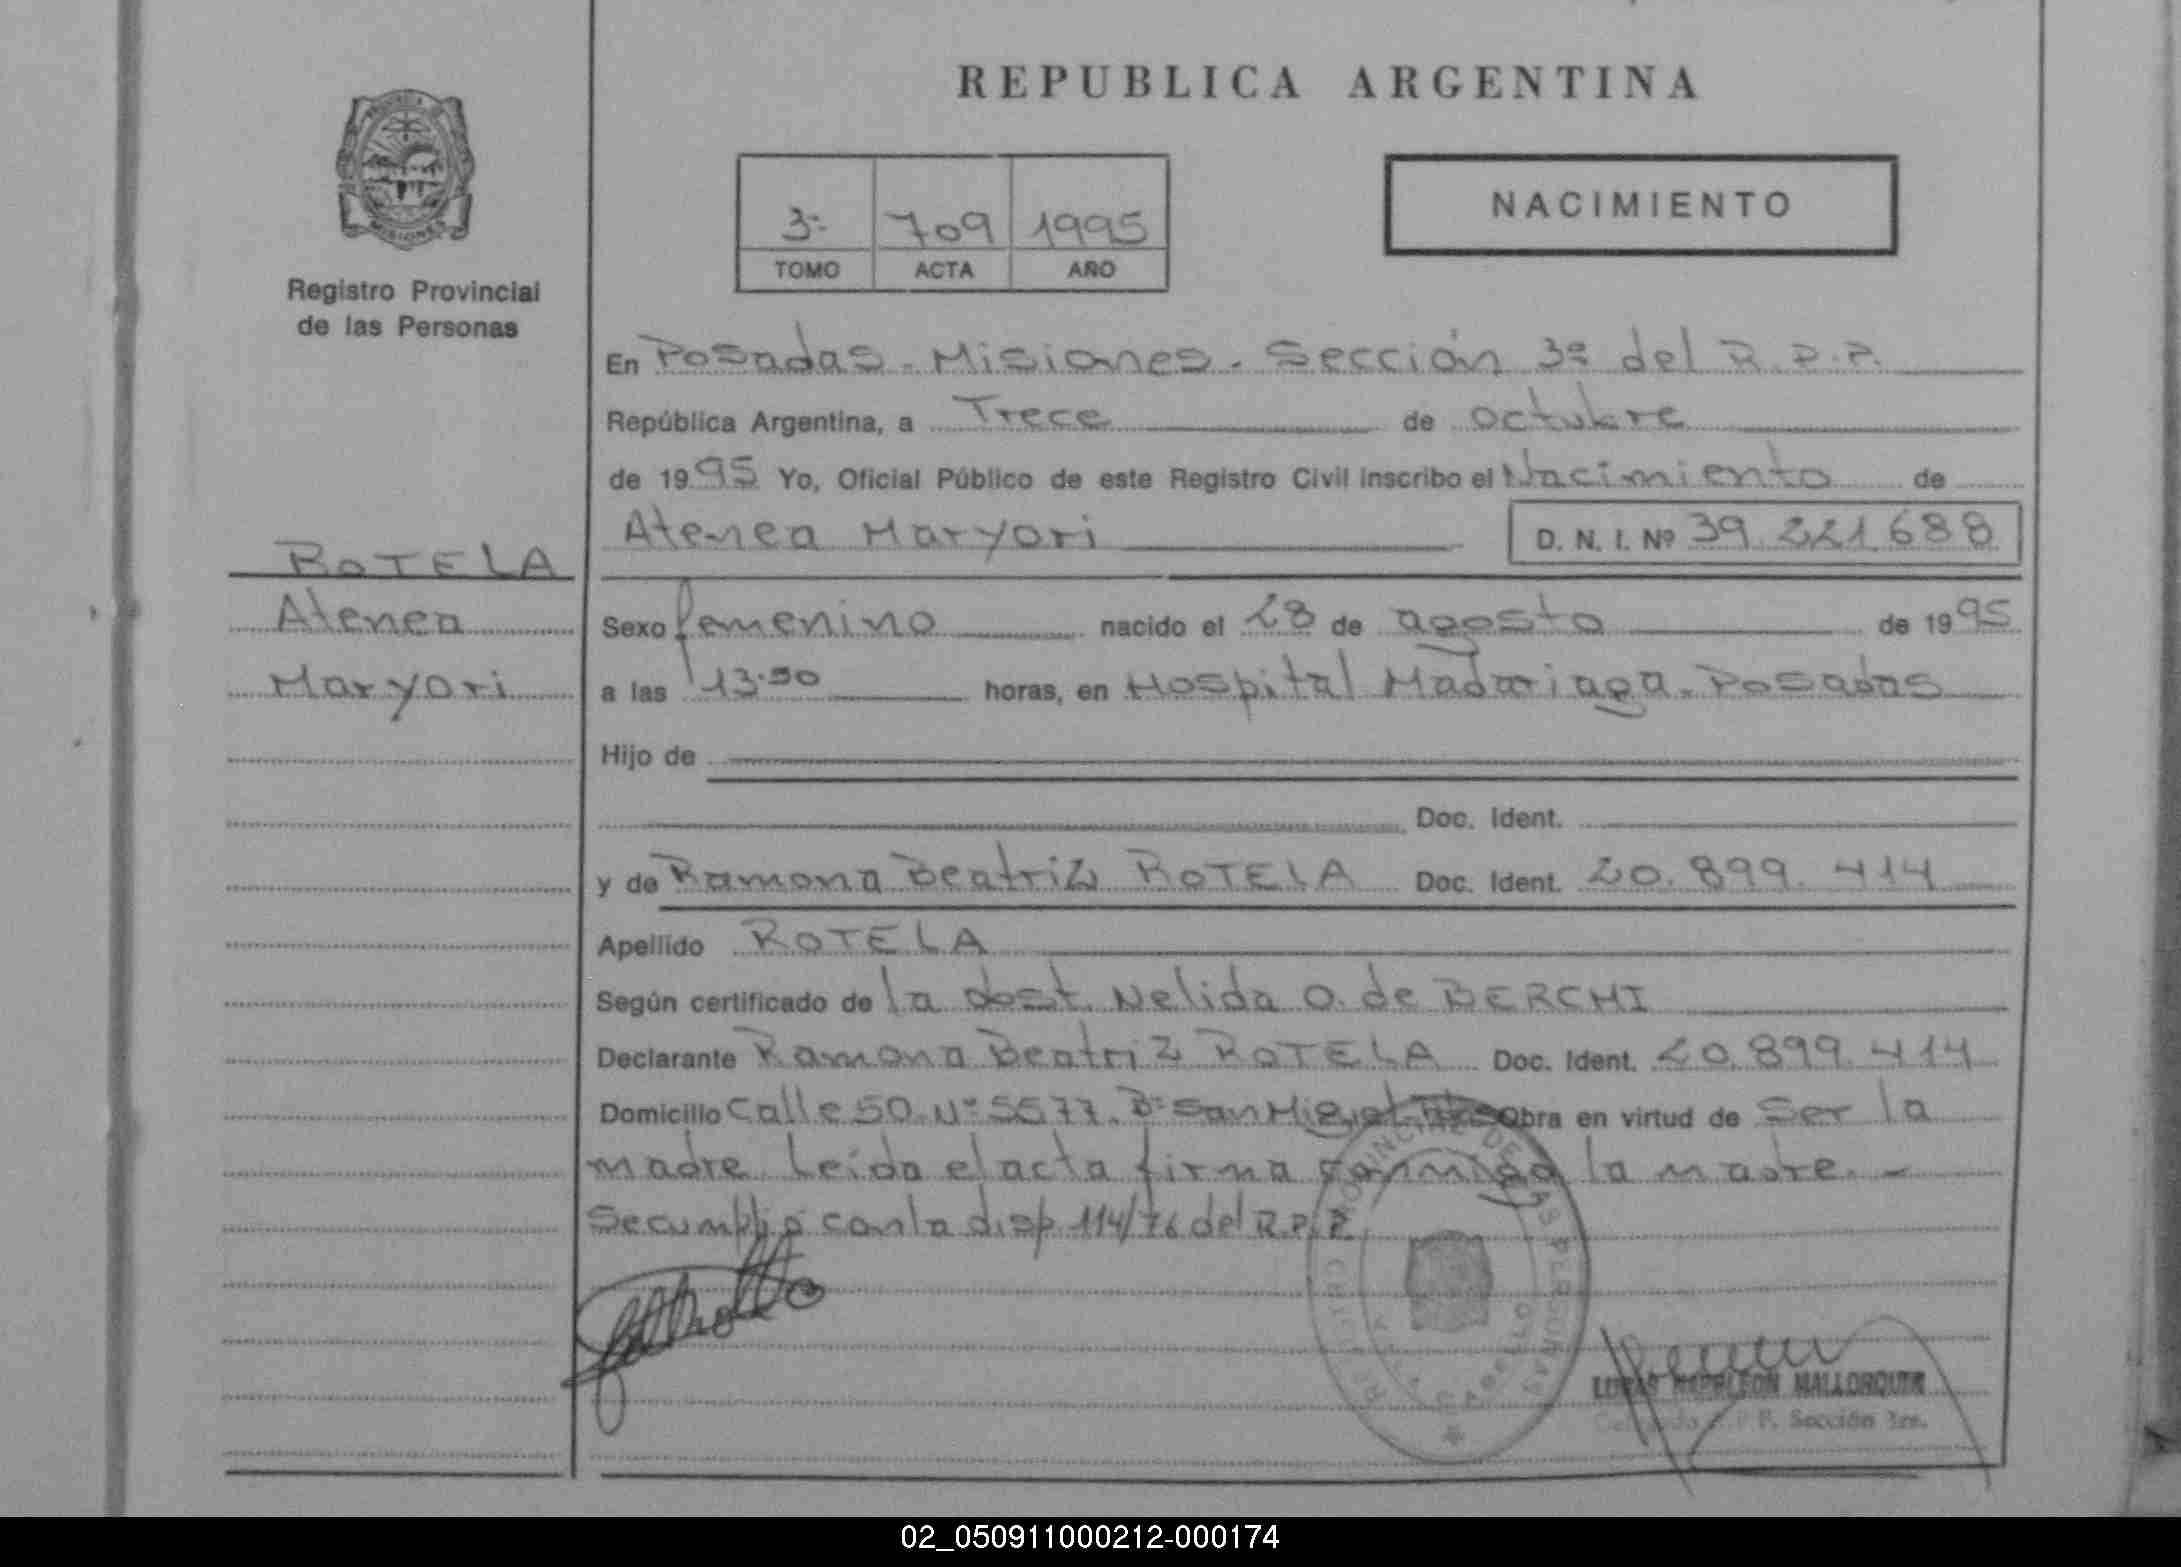 REPUBLICA ARGENTINA
MISIONES
Registro Provincial
de las Personas
3º 709 1995
TOMO ACTA AÑO
NACIMIENTO
En Posadas - Misiones - Sección 3º del R.P.P.
República Argentina, a Trece de octubre
de 1995 Yo, Oficial Público de este Registro Civil inscribo el Nacimiento de
Atenea Maryori D. N. I. Nº 39.221.688
ROTELA
Atenea
Maryori
Sexo femenino nacido el 28 de agosto de 1995
a las 13:50 horas, en Hospital Madariaga. Posadas
Hijo de
Doc. Ident.
y de Ramona Beatriz ROTELA Doc. Ident. 20.899.414
Apellido ROTELA
Según certificado de la obst. Nelida O. de BERCHI
Declarante Ramona Beatriz ROTELA Doc. Ident. 20.899.414
Domicilio Calle 50 Nº 5577. Bº San Miguel Obra en virtud de Ser la
madre. Leida el acta firma conmigo la madre. -
Se cumplió con la disp. 114/76 del R.P.P.
REGISTRO PROVINCIAL DE LAS PERSONAS
LUCAS NAPOLEON MALLORQUIN
R.P.P. Sección 3ra.
02_050911000212-000174